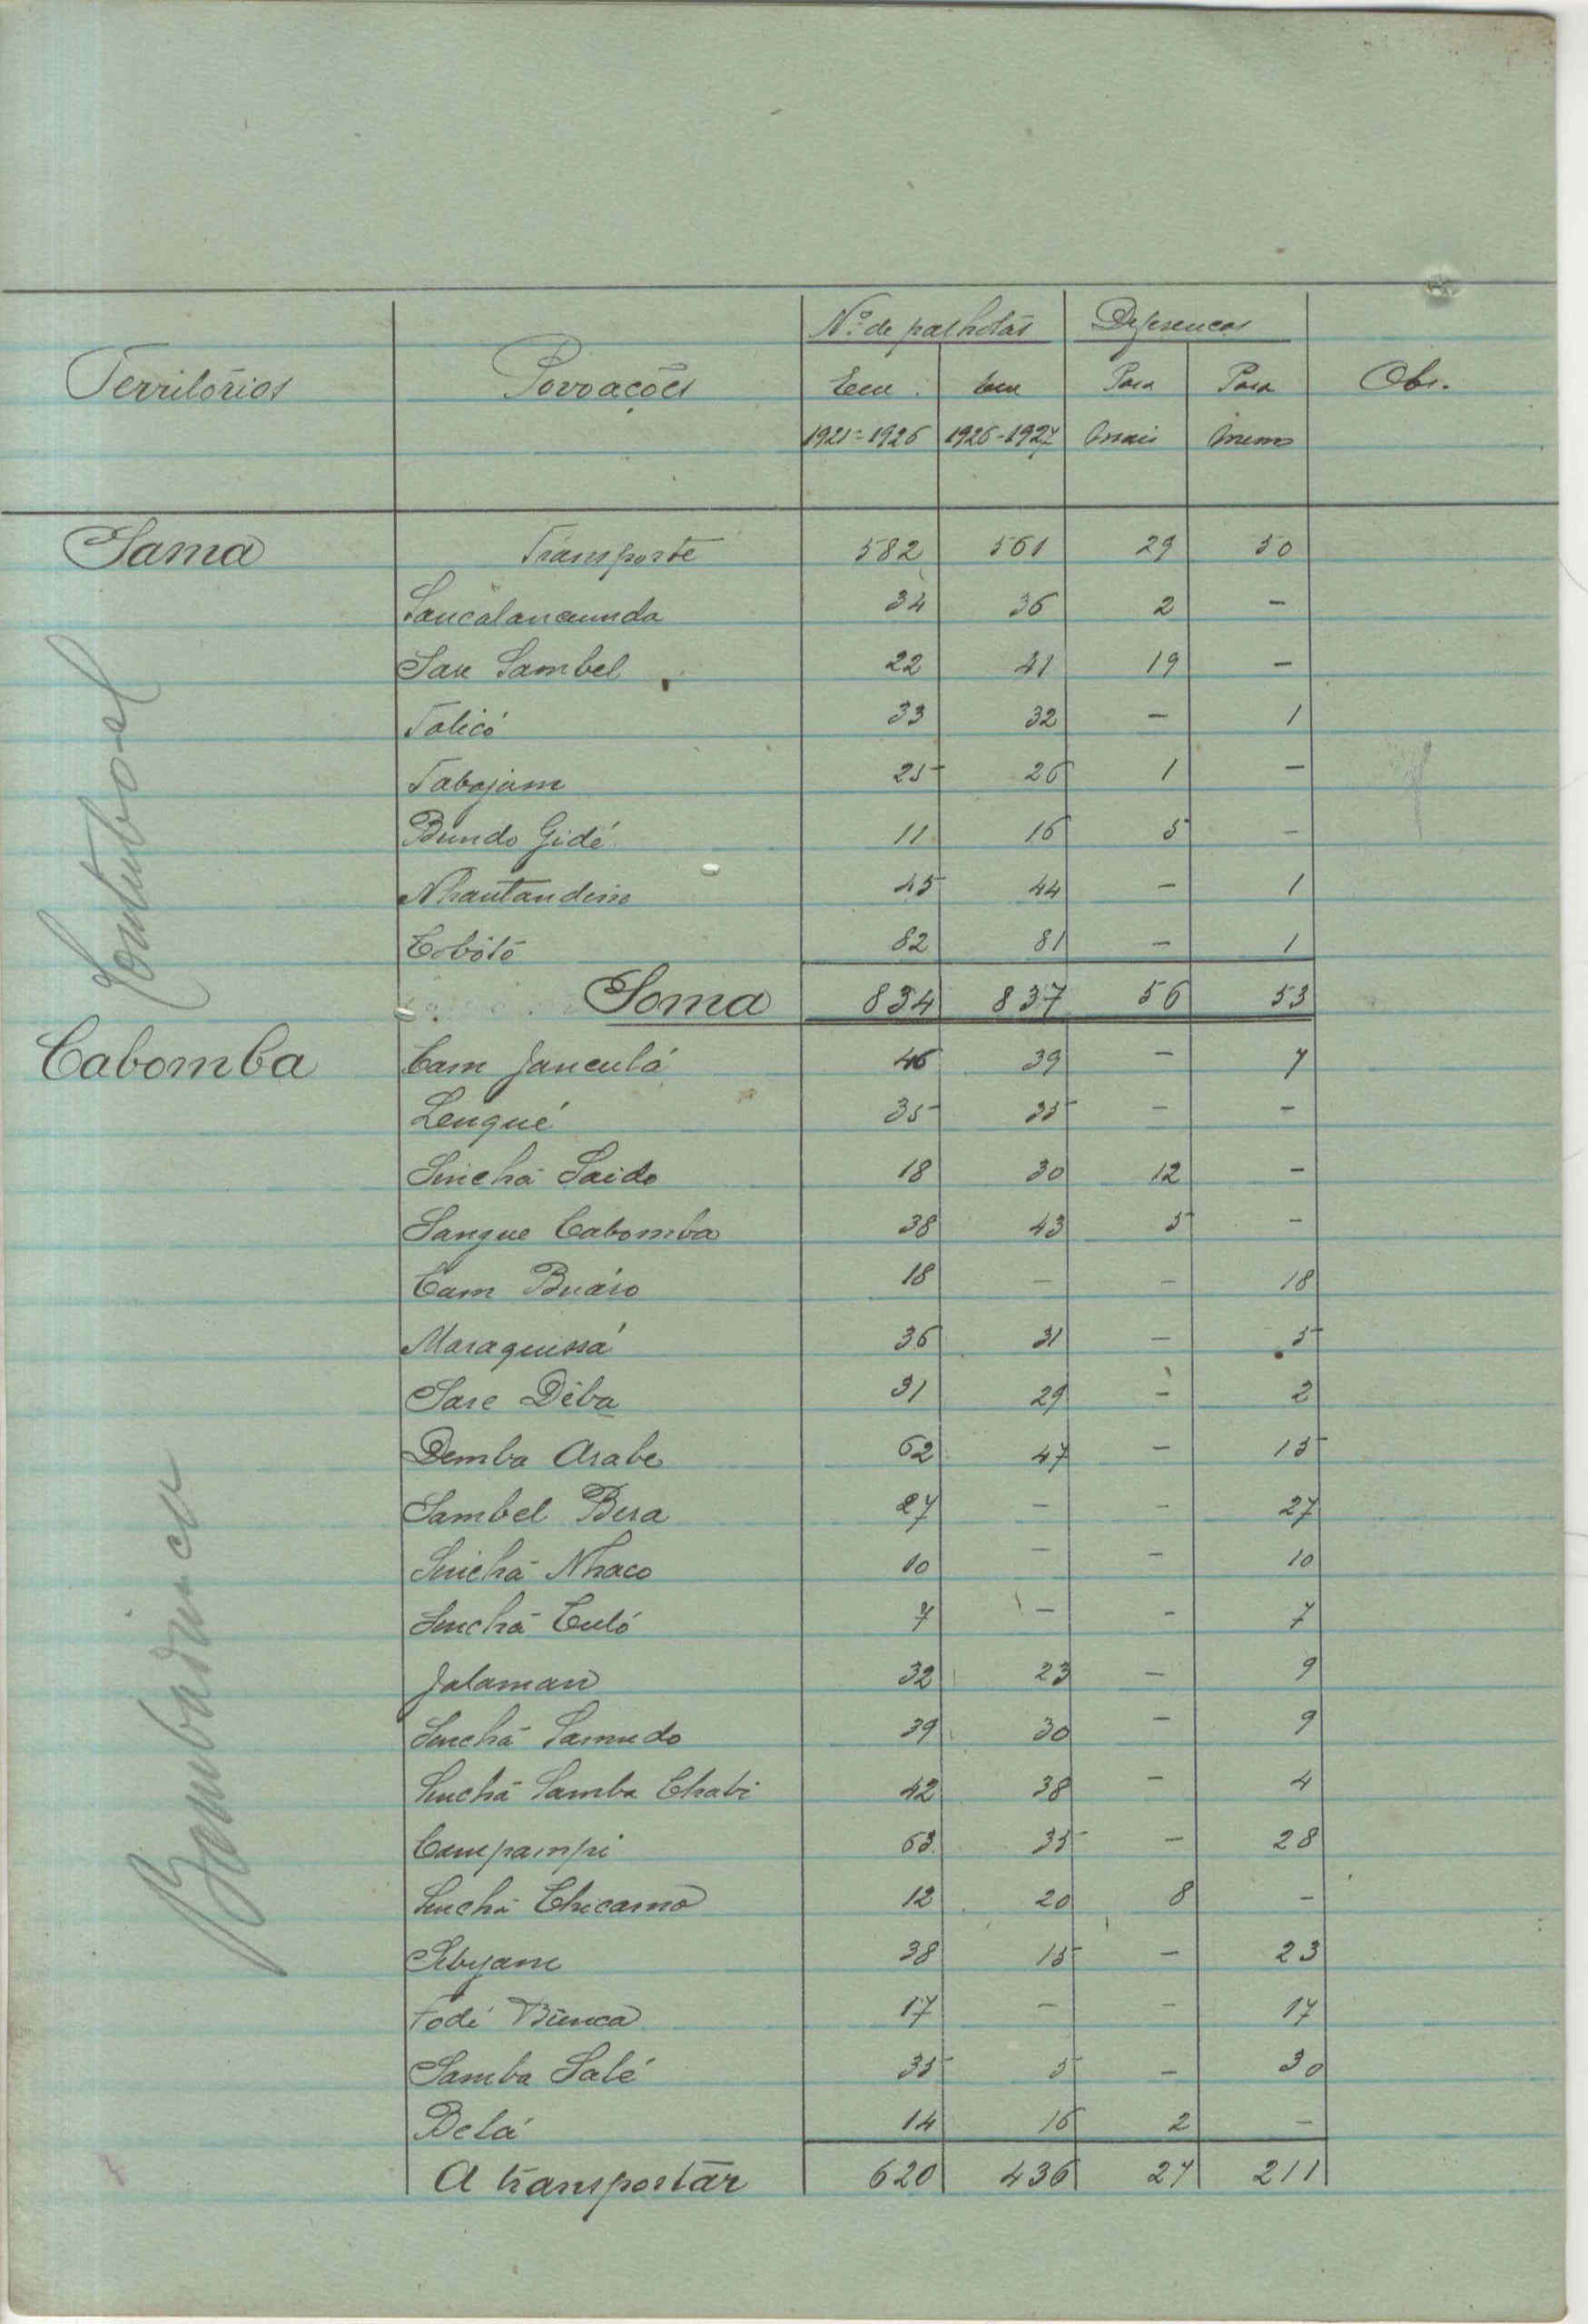 Nº de palhotas Diferenças
Territórios Povoações Em Em Para Para Obs.
1925-1926 1926-1927 mais menos
Sama Transporte 582 561 29 50
Sancalancunda 34 36 2 -
Sare Sambel 22 41 19 -
Talicó 33 32 - 1
Tabajam 25 26 1 -
Bundo Gidé 11 16 5 -
Nhantandim 45 44 - 1
Cobótó 82 81 - 1
Contuboel
Soma 834 837 56 53
Cabomba Cam Janculá 46 39 - 7
Lenqué 35 35 - -
Sinchã Saido 18 30 12 -
Sangue Cabomba 38 43 5 -
Cam Buáro 18 - - 18
Maraquissá 36 31 - 5
Sare Diba 31 29 - 2
Demba Arabe 62 47 - 15
Sambel Bera 27 - - 27
Sinchã Nhaco 10 - - 10
Sinchã Culó 7 - - 7
Jalaman 32 23 - 9
Sinchã Samudo 39 30 - 9
Sinchã Samba Chabi 42 38 - 4
Campampi 63 35 - 28
Sinchã Chicamo 12 20 8 -
38 15 - 23
Fodé Bunca 17 - - 17
Samba Salé 35 5 - 30
Belá 14 16 2 -
Bambadinca
A transportar 620 436 27 211